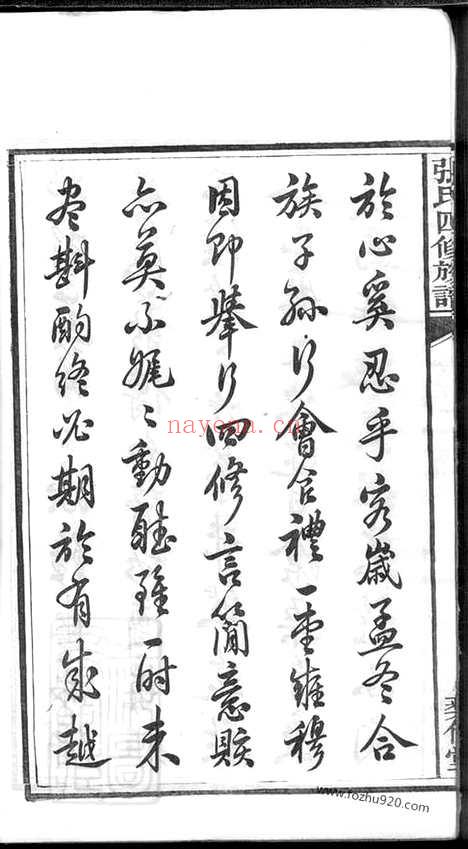 張氏四修族譜
於心奚忍乎客歲孟冬合
族子孫行會合禮一堂雍穆
因即舉行四修言簡意賅
亦莫不娓〻動聽雖一時未
盡斟酌終必期於有成越
nayona.cn
www.fozhu920.com